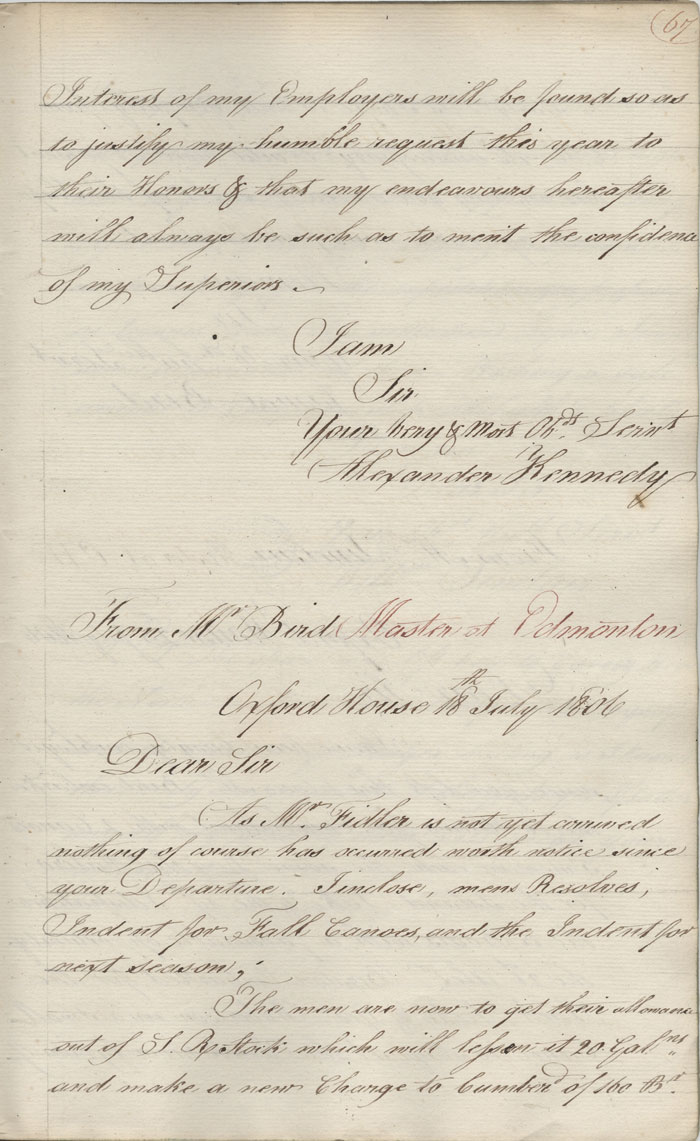 67
Interest of my Employers will be found so as
to justify my humble request this year to
their Honors & that my endeavours hereafter
will always be such as to merit the confidence
of my Superiors.
I am
Sir
Your very & Most Obdt. Servt
Alexander Kennedy
From Mr. Bird Master at Edmonton
Oxford House 18th July 1806
Dear Sir
As Mr. Fidler is not yet arrived
nothing of course has occurred worth notice since
your Departure. I inclose, mens Resolves,
Indent for Fall Canoes, and the Indent for
next season,
The men are now to get their allowance
out of S. R Stock which will lessen it 20 Galns
and make a new Charge to Cumberd of 160 Br.